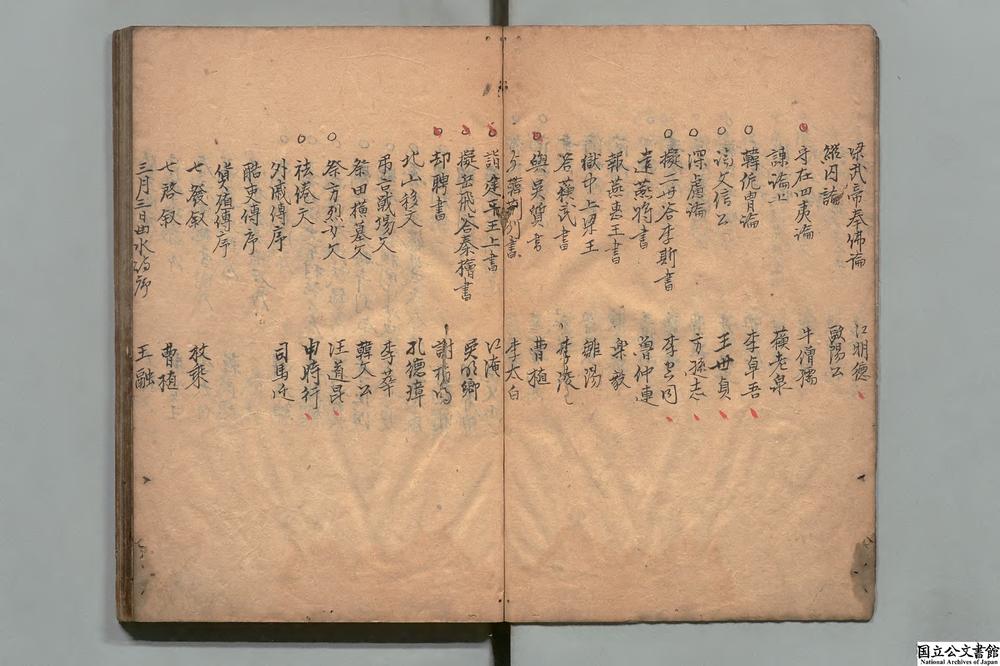 梁武帝奉佛論 江明德
縱囚論 歐陽公
守在四夷論 牛僧孺
諫論上 蘓老泉
韓侂冑論 李卓吾
論文信公 王世貞
深慮論 方孫志
擬二世答李斯書
遺燕将書 魯仲連
報燕惠王書 樂毅
獄中上梁王 鄒陽
答蘓武書 李陵
與吳質書 曹植
与韓荊州書 李太白
詣建平王上書 江淹
擬岳飛答秦檜書 吳明卿
却聘書 謝枋得
北山移文 孔德璋
弔古戰場文 李華
祭田横墓文 韓文公
祭方烈女文 汪道昆
祛倦文 申時行
外戚傳序 司馬迁
酷吏傳序
貨殖傳序
七發叙 枚乘
七啓叙 曹植
三月三日曲水詩序 王融
国立公文書館
National Archives of Japan